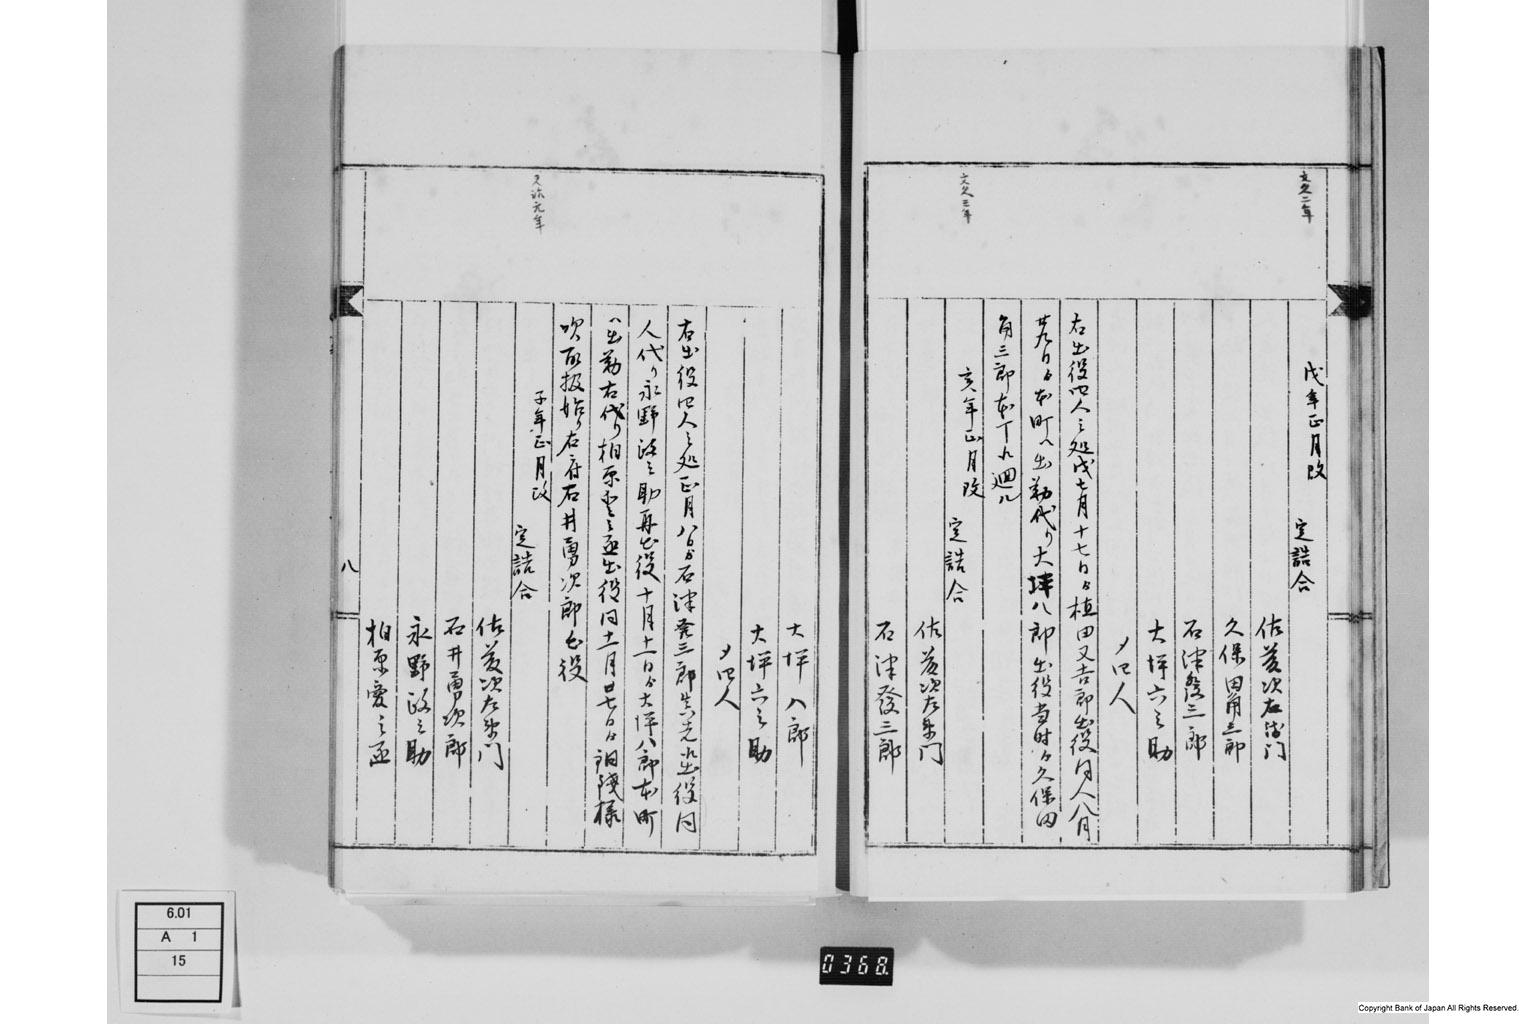 文久二年
戌年正月改
定詰合
佐藤次左衛門
久保田角三郎
石津發三郎
大坪六之助
〆四人
右出役四人之処戌七月十七日ゟ植田又吉郎出役同人八月
廿九日ゟ本町へ出勤代り大坪八郎出役当時ゟ久保田
角三郎本丁江廻ル
文久三年
亥年正月改
定詰合
佐藤次左衛門
石津發三郎
大坪八郎
大坪六之助
〆四人
右出役四人之処正月八日ゟ石津發三郎出役同
人代り永野政之助再出役十月十一日ゟ大坪八郎本町
へ出勤右代り柏原 之丞出役同十一月廿七日ゟ銅銭様
吹取扱始り右府石井勇次郎出役
元治元年
子年正月改
定詰合
佐藤次左衛門
石井勇次郎
永野政之助
柏原愛之丞
八
6.01
A 1
15
0368.
Copyright Bank of Japan All Rights Reserved.